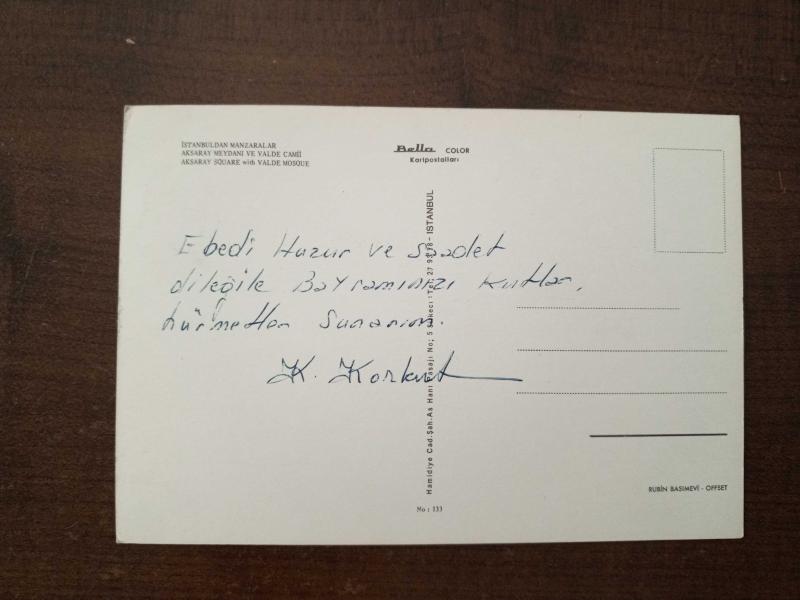 İSTANBULDAN MANZARALAR
AKSARAY MEYDANI VE VALDE CAMİİ
AKSARAY SQUARE with VALDE MOSQUE
Bella COLOR
Kartpostalları
Ebedi Huzur ve Saadet
dileğile Bayramınızı kutlar,
hürmetler sunarım.
K. Korkut
Hamidiye Cad. Şah. As Hanı Pasajı No; 5 Sirkeci: Tel: 27 93 18 - İSTANBUL
RUBİN BASIMEVİ - OFFSET
No: 133